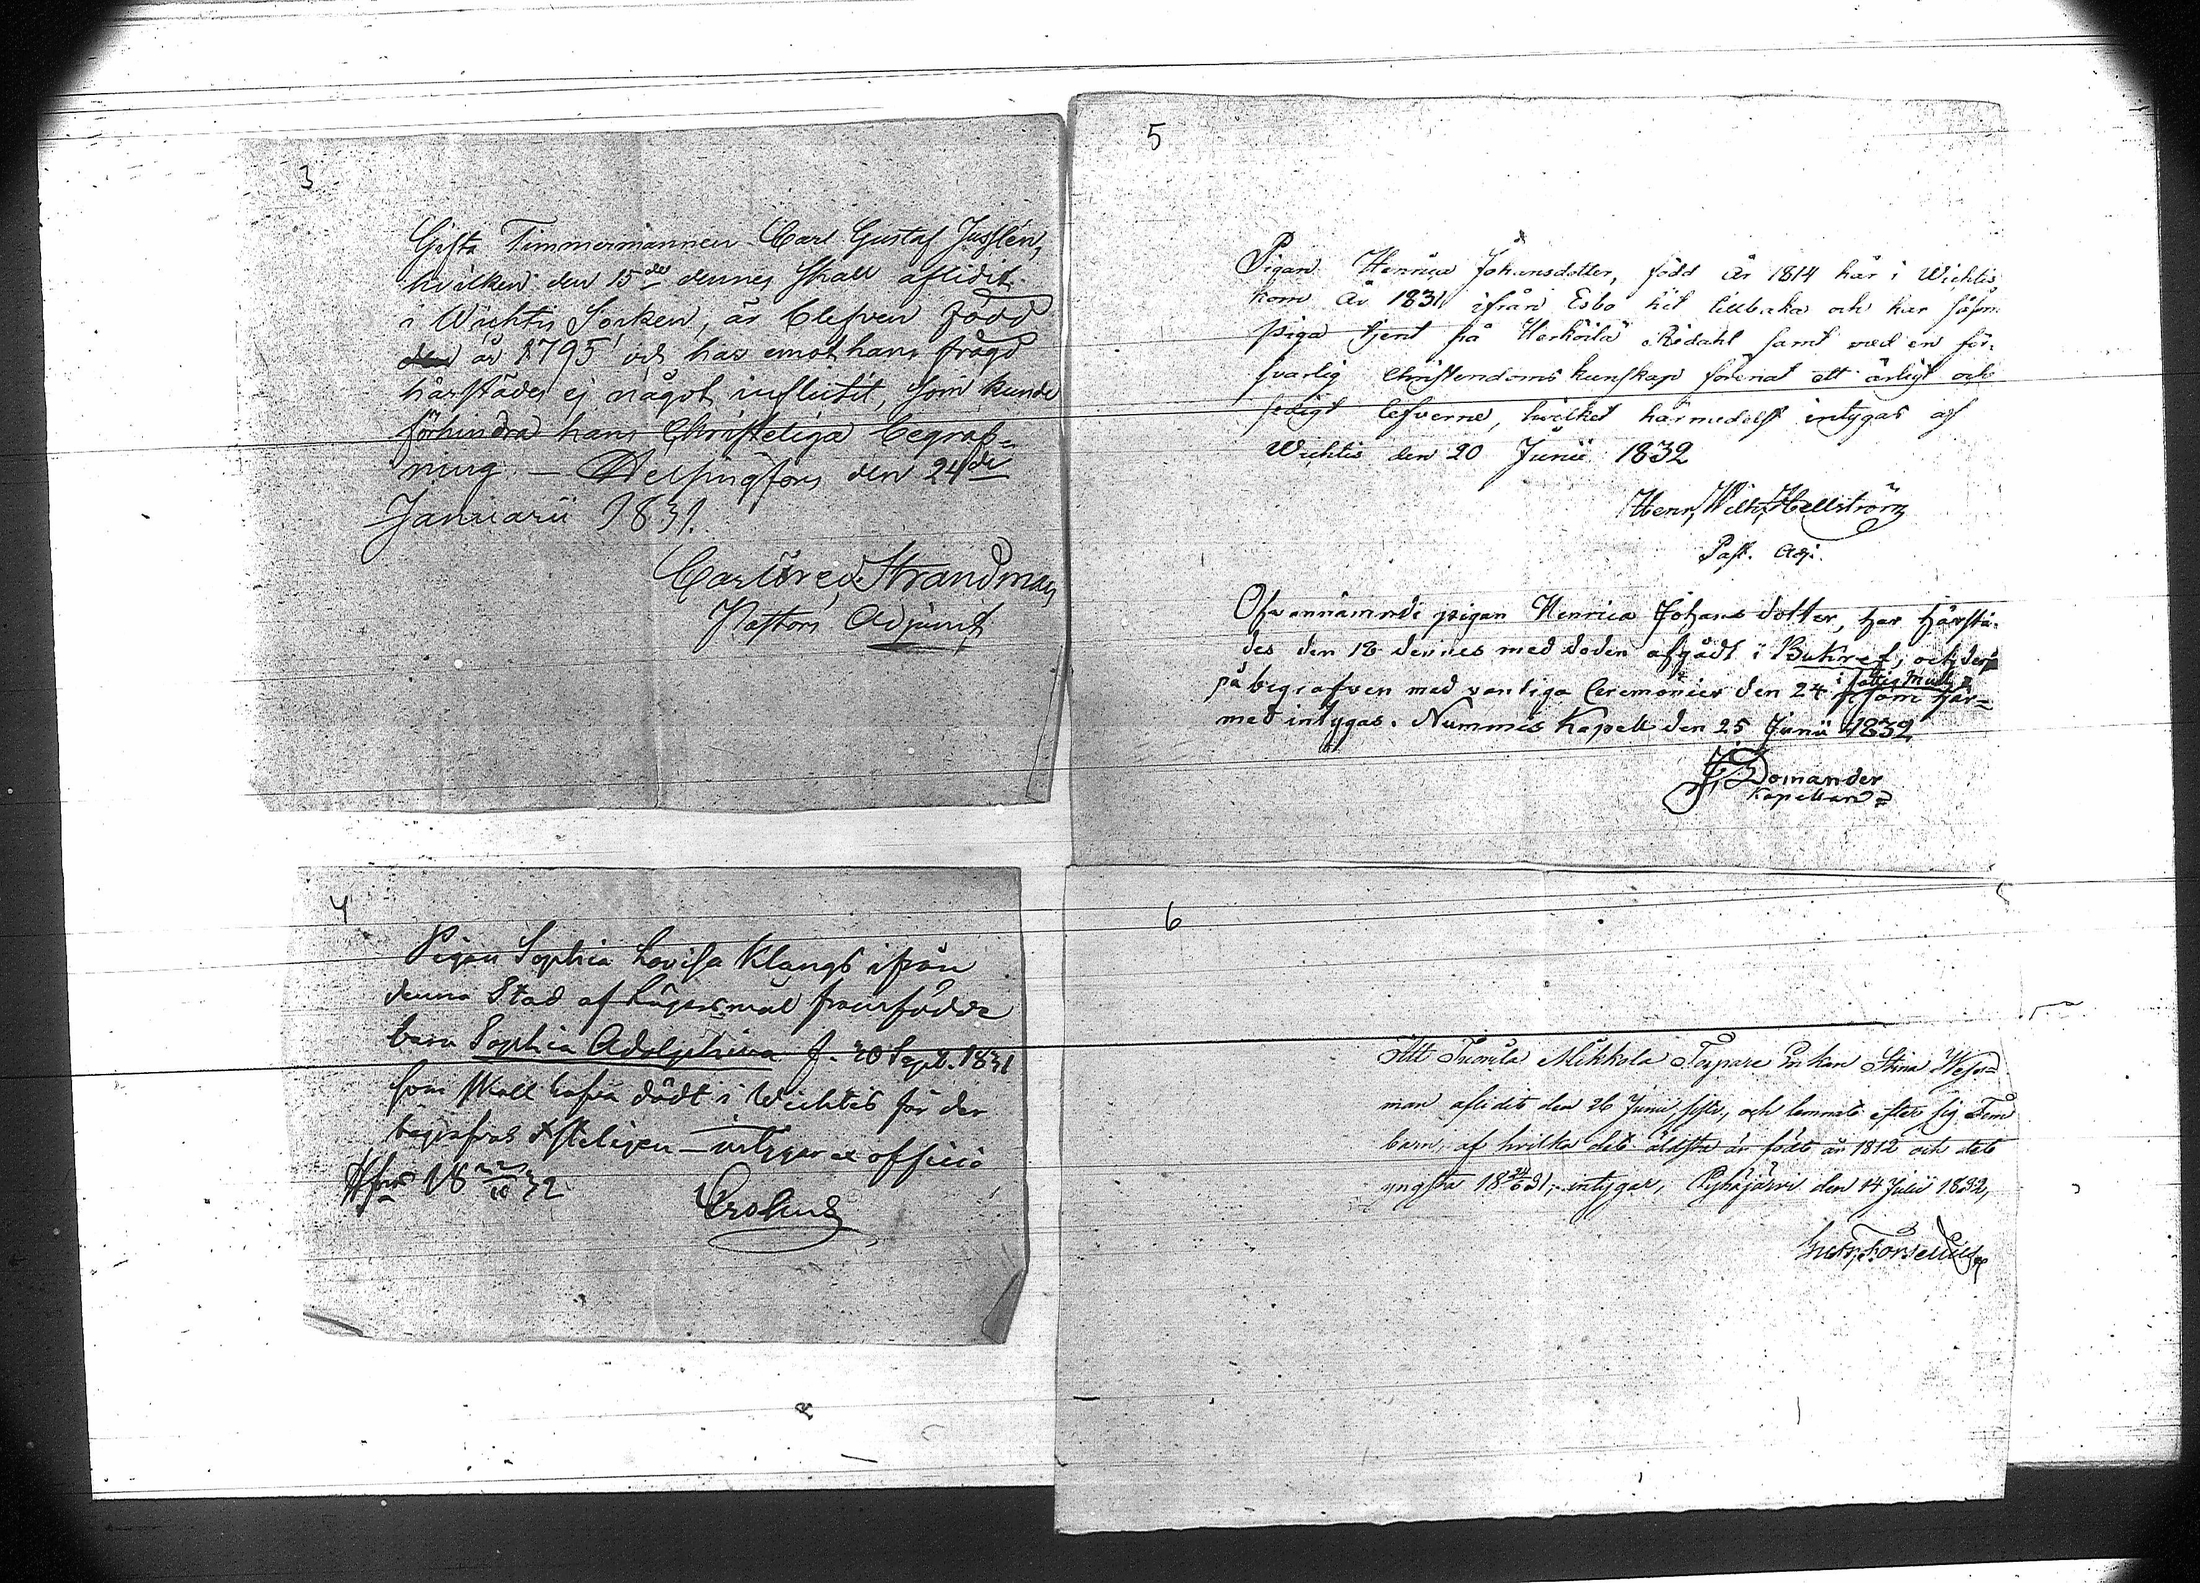 3
Gifta Timmermannen Carl Gustaf Jusslén,
hvilken den 15de dennes skall aflidit
i Wichtis Socken, är blefven född
år 1795 och har emot hans frägd
härstädes ej något influtit, som kunde
förhindra hans Christeliga begraf-
ning. — Helsingfors den 24de
Januarii 1831.
Carl Fred. Strandman
Pastors Adjunct
4
Pigan Sophia Lovisa Klangs ifrån
denna Stad af Lägersmål framfödde
barn Sophia Adolphina f. 20 Sept. 1831
som skall hafva dödt i Wichtis får der
begrafvas Xsteligen — intygar ex officio
Hfors 18 22/10 32
Crohns
5
Pigan Henrica Johansdotter, född År 1814 här i Wichtis,
kom År 1831 ifrån Esbo hit tillbaka och har såsom
piga tjent på Herkoila Redahl samt med en för-
svarlig Christendoms kunskap förenat ett ärligt och
sedigt lefverne, hvilket härmedelst intygas af
Wichtis den 20 Junii 1832
Henr. Wilh. Hellström
Past. Adj.
Ofvannämnde pigan Henrica Johans dotter, har härstä-
des den 18 dennes med döden afgådt i Bukref, och der
på begrafven med vanliga Ceremonier den 24 som här=
med intygas. Nummis Kapell den 25 Junii 1832
Domander
Kapellan
6
Att Tuomila Mikkola Torpare Enkan Stina Weser=
man aflidit den 26 Junii sistl., och lemnat efter sig Fem
barn, af hvilka det äldsta är födt år 1812 och det
yngsta 18 31, intygar, Pyhäjärvi den 14 Julii 1832,